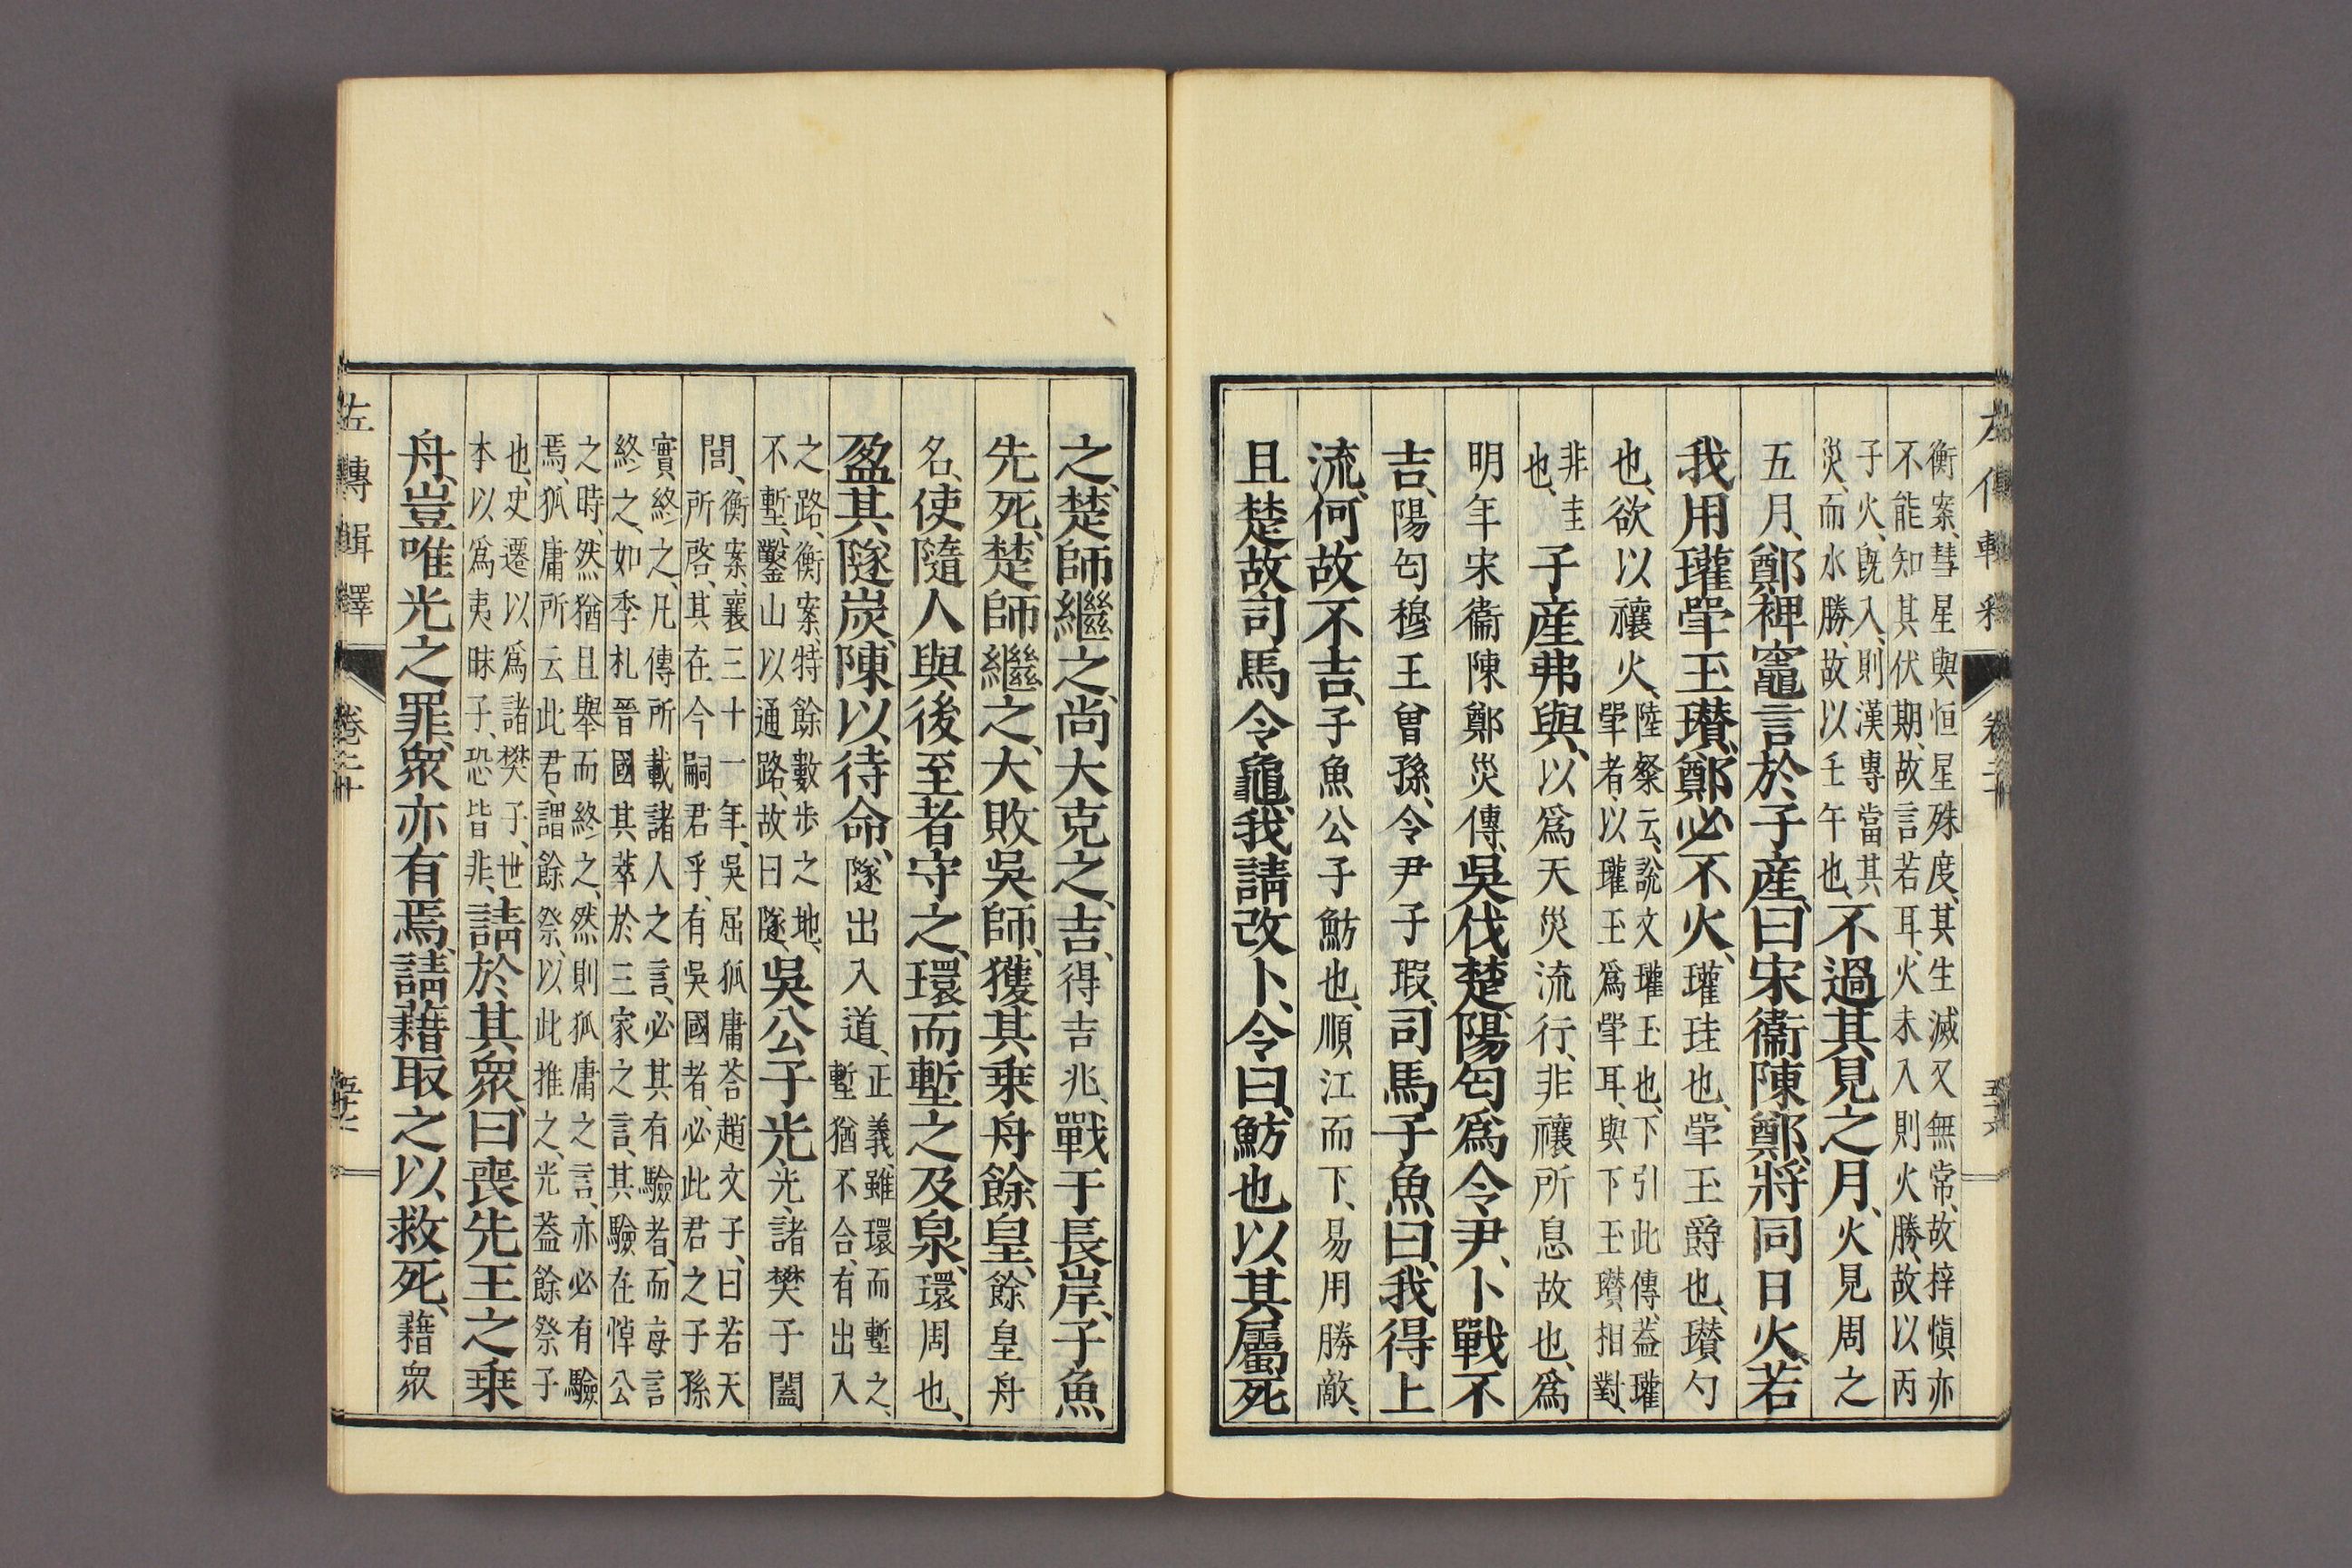 衡案、彗星與恒星殊度、其生滅又無常、故梓愼亦
不能知其伏期、故言若耳、火未入則火勝、故以丙
子火、旣入、則漢專當其
災、而水勝、故以壬午也、
不過其見之月、火見周之
五月、鄭裨竈言於子産、曰宋衞陳鄭、將同日火、若
我用瓘斝玉瓚、鄭必不火、瓘珪也、斝玉爵也、瓚勺
也、欲以禳火、
陸粲云、說文瓘玉也、下引此傳、葢瓘
斝者、以瓘玉爲斝耳、與下玉瓚相對、
非圭
也、
子産弗與、以爲天災流行、非禳所息故也、爲
明年宋衞陳鄭災傳、吳伐楚、陽匄爲令尹、卜戰不
吉、陽匄穆王曾孫、令尹子瑕、司馬子魚曰、我得上
流、何故不吉、子魚公子魴也、順江而下、易用勝敵、
且楚故、司馬令龜、我請改卜、令曰、魴也以其屬死
之、楚師繼之、尚大克之、吉、得吉兆、戰于長岸、子魚
先死、楚師繼之、大敗吳師、獲其乗舟餘皇、餘皇舟
名、使隨人與後至者守之、環而塹之、及泉、環周也、
盈其隧炭、陳以待命、隧出入道、
正義、雖環而塹之、
塹猶不合、有出入
之路、衡案、特餘數步之地、
不塹、鑿山以通路、故曰隧、
吳公子光、光、諸樊子闔
閭、
衡案、襄三十一年、吳屈狐庸荅趙文子、曰若天
所啓、其在今嗣君乎、有吳國者、必此君之子孫
實終之、凡傳所載諸人之言、必其有驗者、而每言
終之、如季札晉國其萃於三家之言、其驗在悼公
之時、然猶且舉而終之、然則狐庸之言、亦必有驗
焉、狐庸所云此君、謂餘祭、以此推之、光葢餘祭子
也、史遷以爲諸樊子、世
本以爲夷昧子、恐皆非、
請於其衆、曰喪先王之乗
舟、豈唯光之罪、衆亦有焉、請藉取之以救死、藉衆
左傳輯釋
卷二十